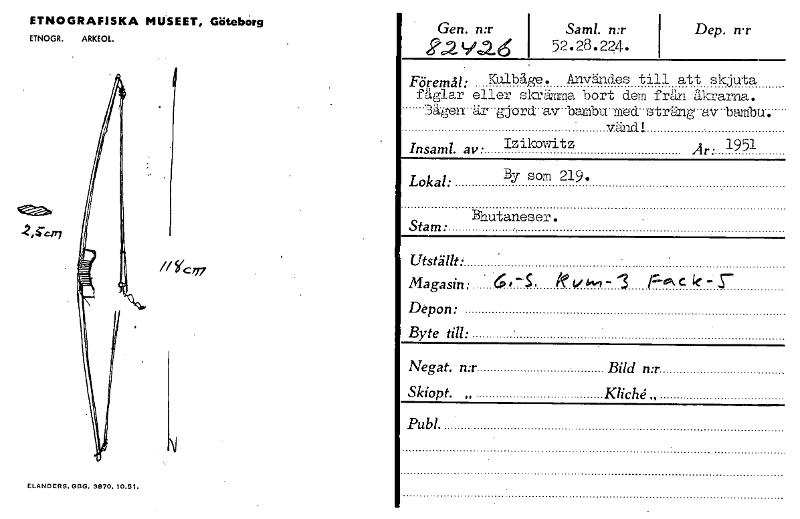 ETNOGRAFISKA MUSEET, Göteborg
ETNOGR. ARKEOL.
2,5cm
118cm
ELANDERS, GBG. 3870. 10.51.
Gen. n:r Saml. n:r Dep. n:r
82426 52.28.224.
Föremål: Kulbåge. Användes till att skjuta
fåglar eller skrämma bort dem från åkrarna.
Bågen är gjord av bambu med sträng av bambu.
vänd!
Insaml. av: Izikowitz År: 1951
Lokal: By som 219.
Stam: Bhutaneser.
Utställt:
Magasin: G.-S. Rum-3 Fack-5
Depon:
Byte till:
Negat. n:r Bild n:r
Skiopt. „ Kliché „
Publ.